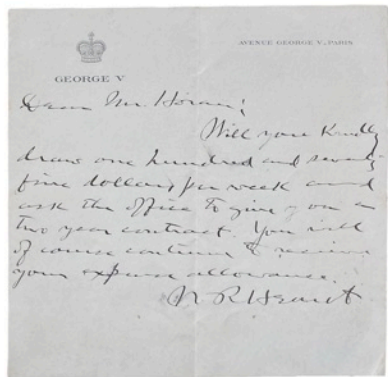 GEORGE V
AVENUE GEORGE V. PARIS
Dear Mr. Horan;
Will you Kindly
draw one hundred and seventy
five dollars per week and
ask the office to give you a
two year contract. You will
of course continue to receive
your expense allowance.
W R Hearst